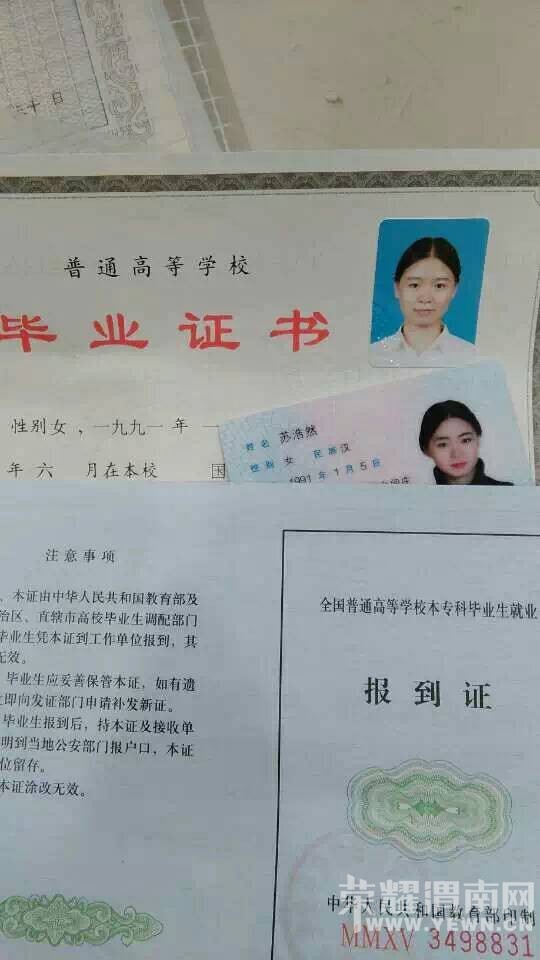 三十日
普通高等学校
毕业证书
性别女,一九九一年一
年六 月在本校 国
姓名 苏浩然
性别 女 民族 汉
1991年1月5日
注意事项
、本证由中华人民共和国教育部及
治区、直辖市高校毕业生调配部门
毕业生凭本证到工作单位报到,其
无效。
毕业生应妥善保管本证,如有遗
立即向发证部门申请补发新证。
毕业生报到后,持本证及接收单
明到当地公安部门报户口,本证
位留存。
本证涂改无效。
全国普通高等学校本专科毕业生就业
报到证
中华人民共和国教育部印制
MMXV 3498831
荣耀渭南网
WWW.YEWN.CN